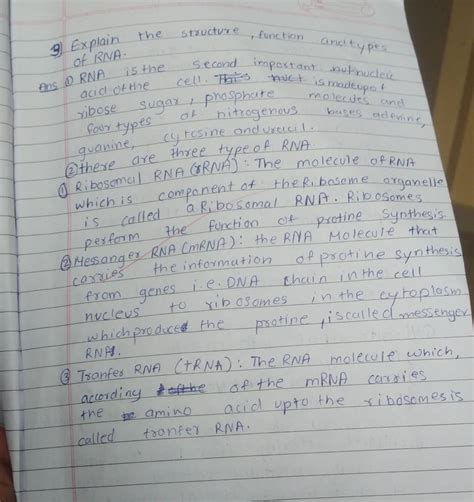 9) Explain the structure, function and types
of RNA.
Ans ① RNA is the second important nucleic
acid of the cell. This is made up of
ribose sugar, phosphate molecules and
four types of nitrogenous bases adevine,
guanine, cytosine and uracil.
② there are three type of RNA
① Ribosomal RNA (rRNA): The molecule of RNA
which is component of the Ribosome organelle
is called a Ribosomal RNA. Ribosomes
perform the function of protine synthesis.
② Messanger RNA (mRNA): the RNA Molecule that
carries the information of protine synthesis
from genes i.e. DNA chain in the cell
nucleus to ribosomes in the cytoplasm
which produces the protine, is called messenger
RNA.
③ Tranfer RNA (tRNA): The RNA molecule which,
according of the mRNA carries
the amino acid upto the ribosomes is
called tranfer RNA.